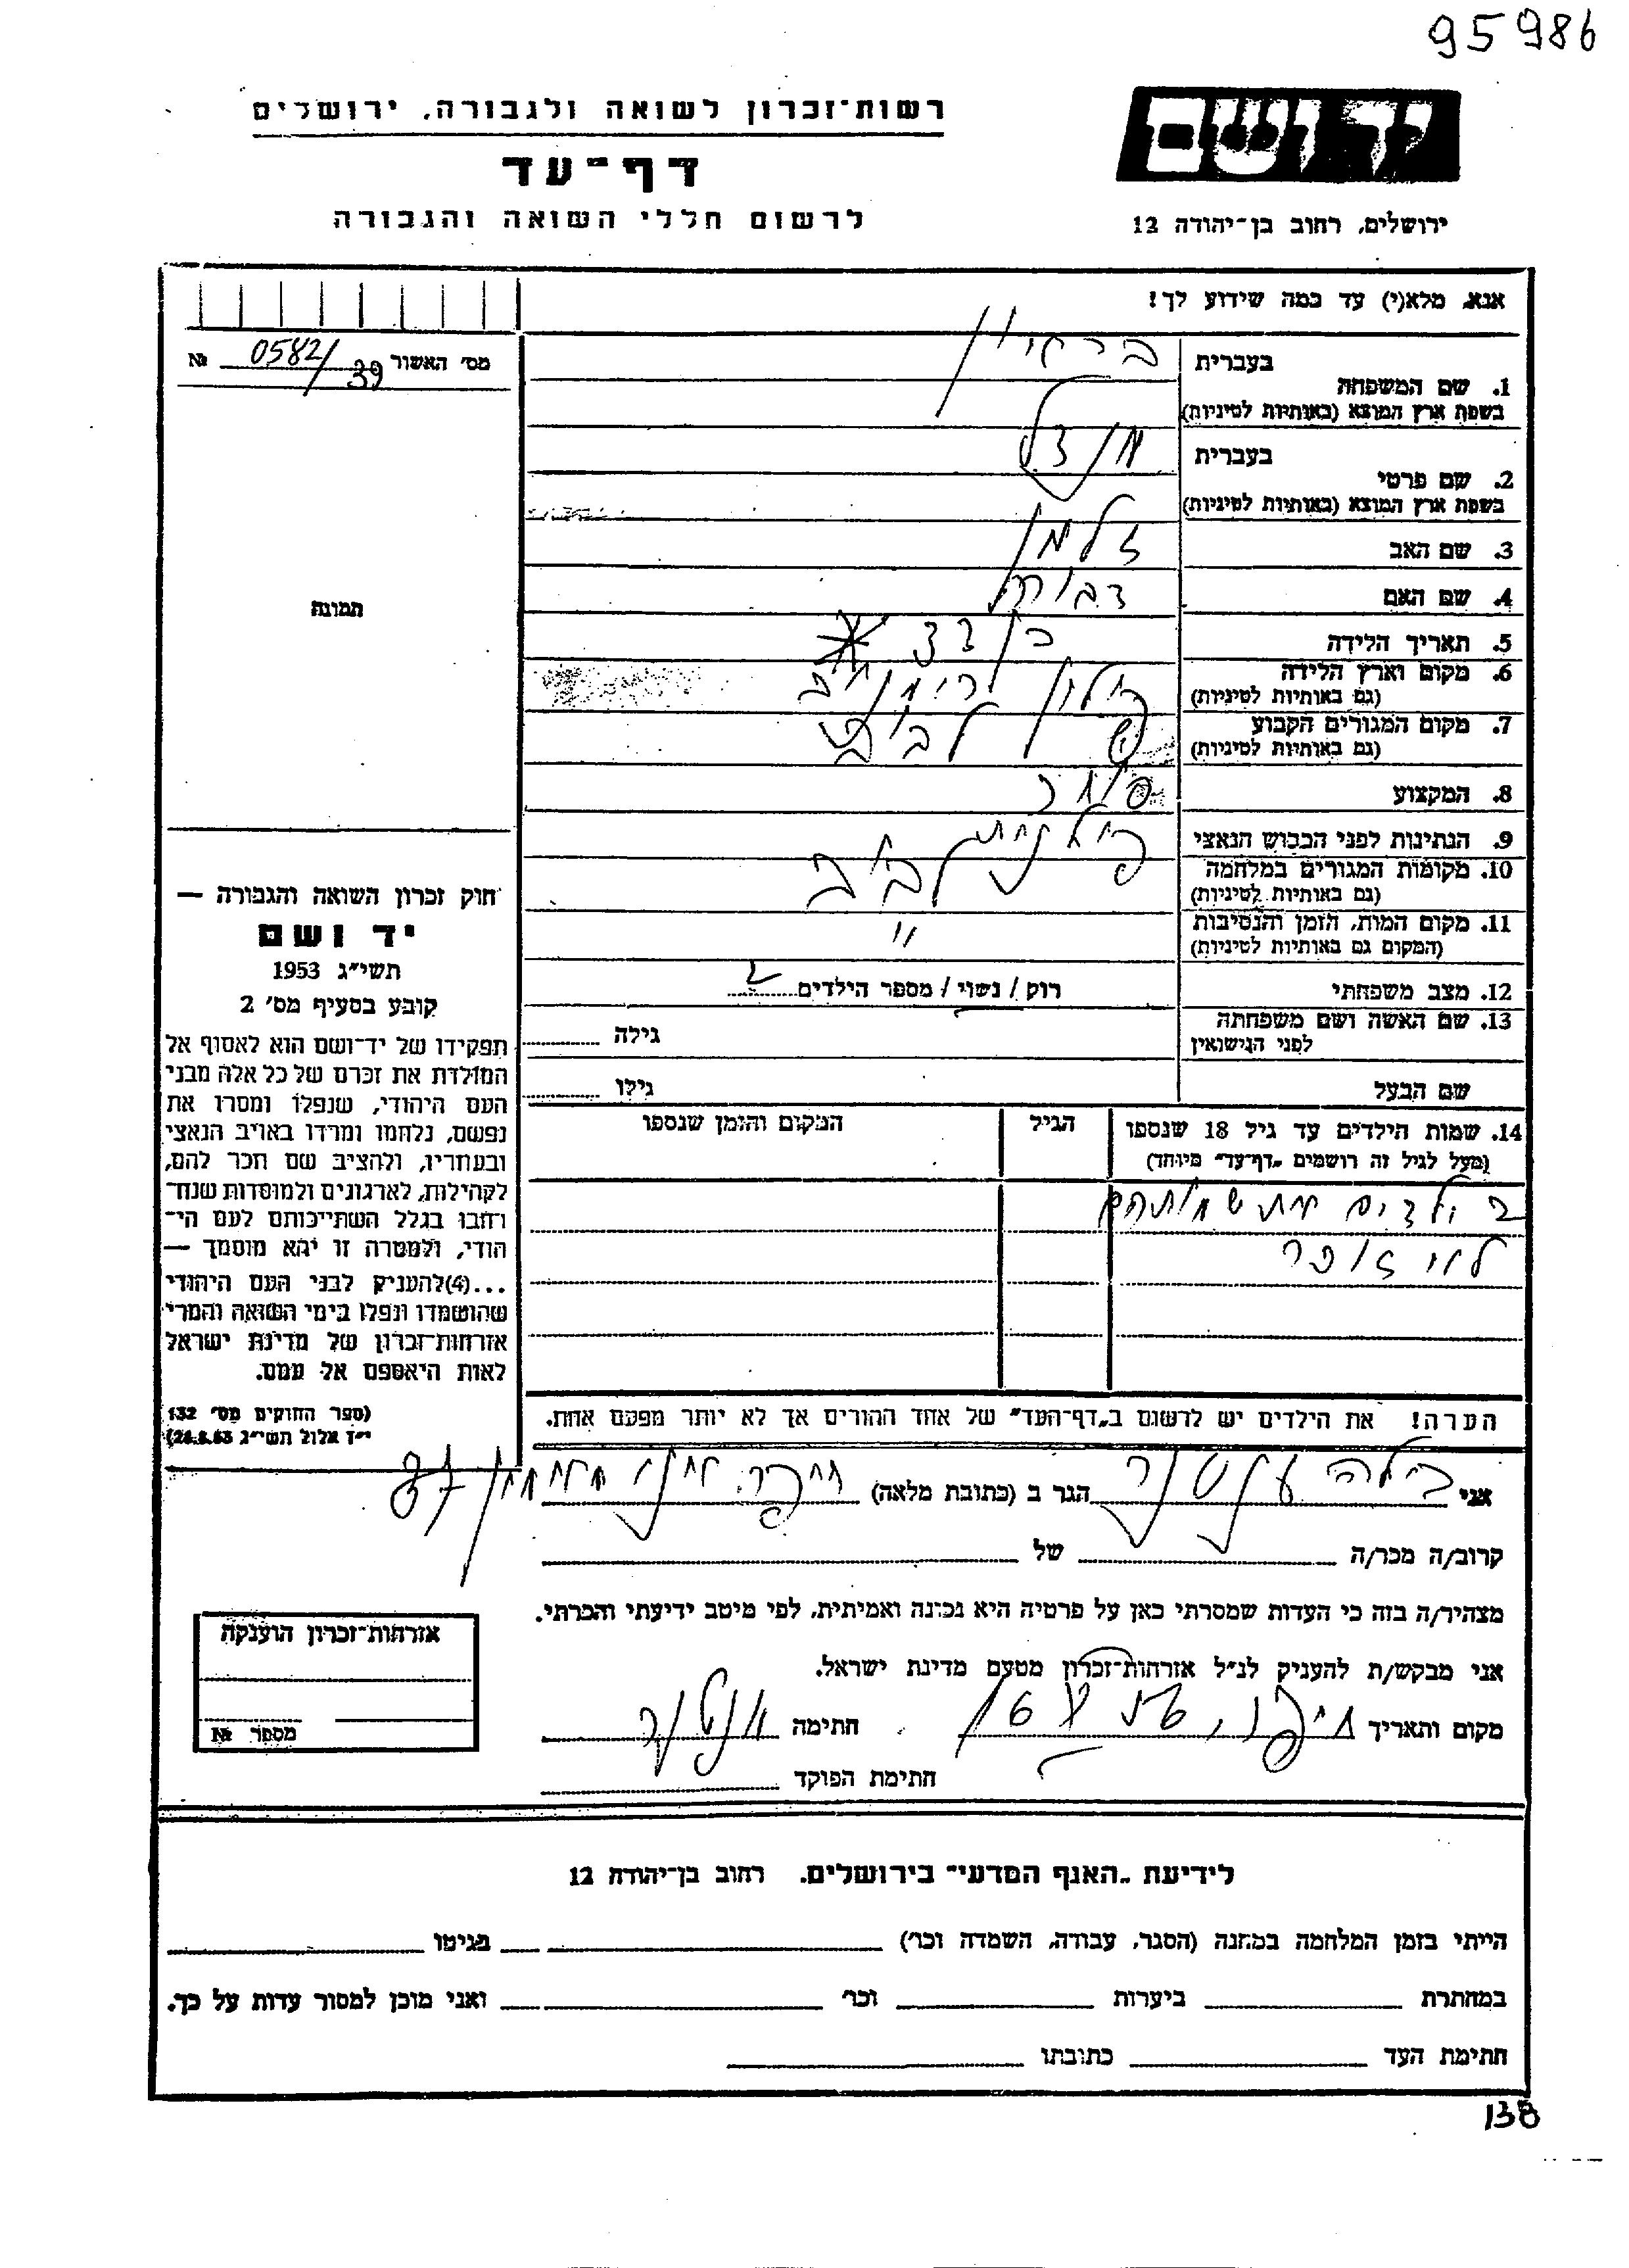 95986
ידושם
רשות־זכרון לשואה ולגבורה, ירושלים
דף־עד
לרשום חללי השואה והגבורה
ירושלים, רחוב בן־יהודה 12
אנא, מלא(י) עד כמה שידוע לך!
מס׳ האשור 0582/39 №
בעברית
1. שם המשפחה
בשפת ארץ המוצא (באותיות לטיניות)
בעברית מנדל
2. שם פרטי
בשפת ארץ המוצא (באותיות לטיניות)
3. שם האב זלמן
4. שם האם
תמונה
5. תאריך הלידה
6. מקום וארץ הלידה
(גם באותיות לטיניות)
7. מקום המגורים הקבוע לבוב
(גם באותיות לטיניות)
8. המקצוע סוחר
9. הנתינות לפני הכבוש הנאצי פולנית
10. מקומות המגורים במלחמה לבוב
(גם באותיות לטיניות)
11. מקום המות, הזמן והנסיבות "
(המקום גם באותיות לטיניות)
12. מצב משפחתי רוק / נשוי / מספר הילדים 2
13. שם האשה ושם משפחתה גילה
לפני הנישואין
שם הבעל גילו
14. שמות הילדים עד גיל 18 שנספו הגיל המקום והזמן שנספו
(מעל לגיל זה רושמים „דף־עד״ מיוחד)
ב ילדים את שמותיהם
לא זוכר
הערה! את הילדים יש לרשום ב„דף־העד״ של אחד ההורים אך לא יותר מפעם אחת.
חוק זכרון השואה והגבורה —
יד ושם
תשי״ג 1953
קובע בסעיף מס׳ 2
תפקידו של יד־ושם הוא לאסוף אל
המולדת את זכרם של כל אלה מבני
העם היהודי, שנפלו ומסרו את
נפשם, נלחמו ומרדו באויב הנאצי
ובעוזריו, ולהציב שם וזכר להם,
לקהילות, לארגונים ולמוסדות שנח־
רחבו בגלל השתייכותם לעם הי־
הודי, ולמטרה זו יהא מוסמך —
...(4) להעניק לבני העם היהודי
שהושמדו ונפלו בימי השואה והמרי
אזרחות־זכרון של מדינת ישראל
לאות היאספם אל עמם.
(ספר החוקים מס׳ 132
י״ז אלול תשי״ג 28.8.53)
אני הגר ב (כתובת מלאה) 37
קרוב/ה מכר/ה של
מצהיר/ה בזה כי העדות שמסרתי כאן על פרטיה היא נכונה ואמיתית, לפי מיטב ידיעתי והכרתי.
אני מבקש/ת להעניק לנ״ל אזרחות־זכרון מטעם מדינת ישראל.
מקום ותאריך חיפה, חתימה
חתימת הפוקד
אזרחות־זכרון הוענקה
מספר №
לידיעת „האגף המדעי״ בירושלים. רחוב בן־יהודה 12
הייתי בזמן המלחמה במחנה (הסגר, עבודה, השמדה וכר) בגיטו
במחתרת ביערות וכר ואני מוכן למסור עדות על כך.
חתימת העד כתובתו
138